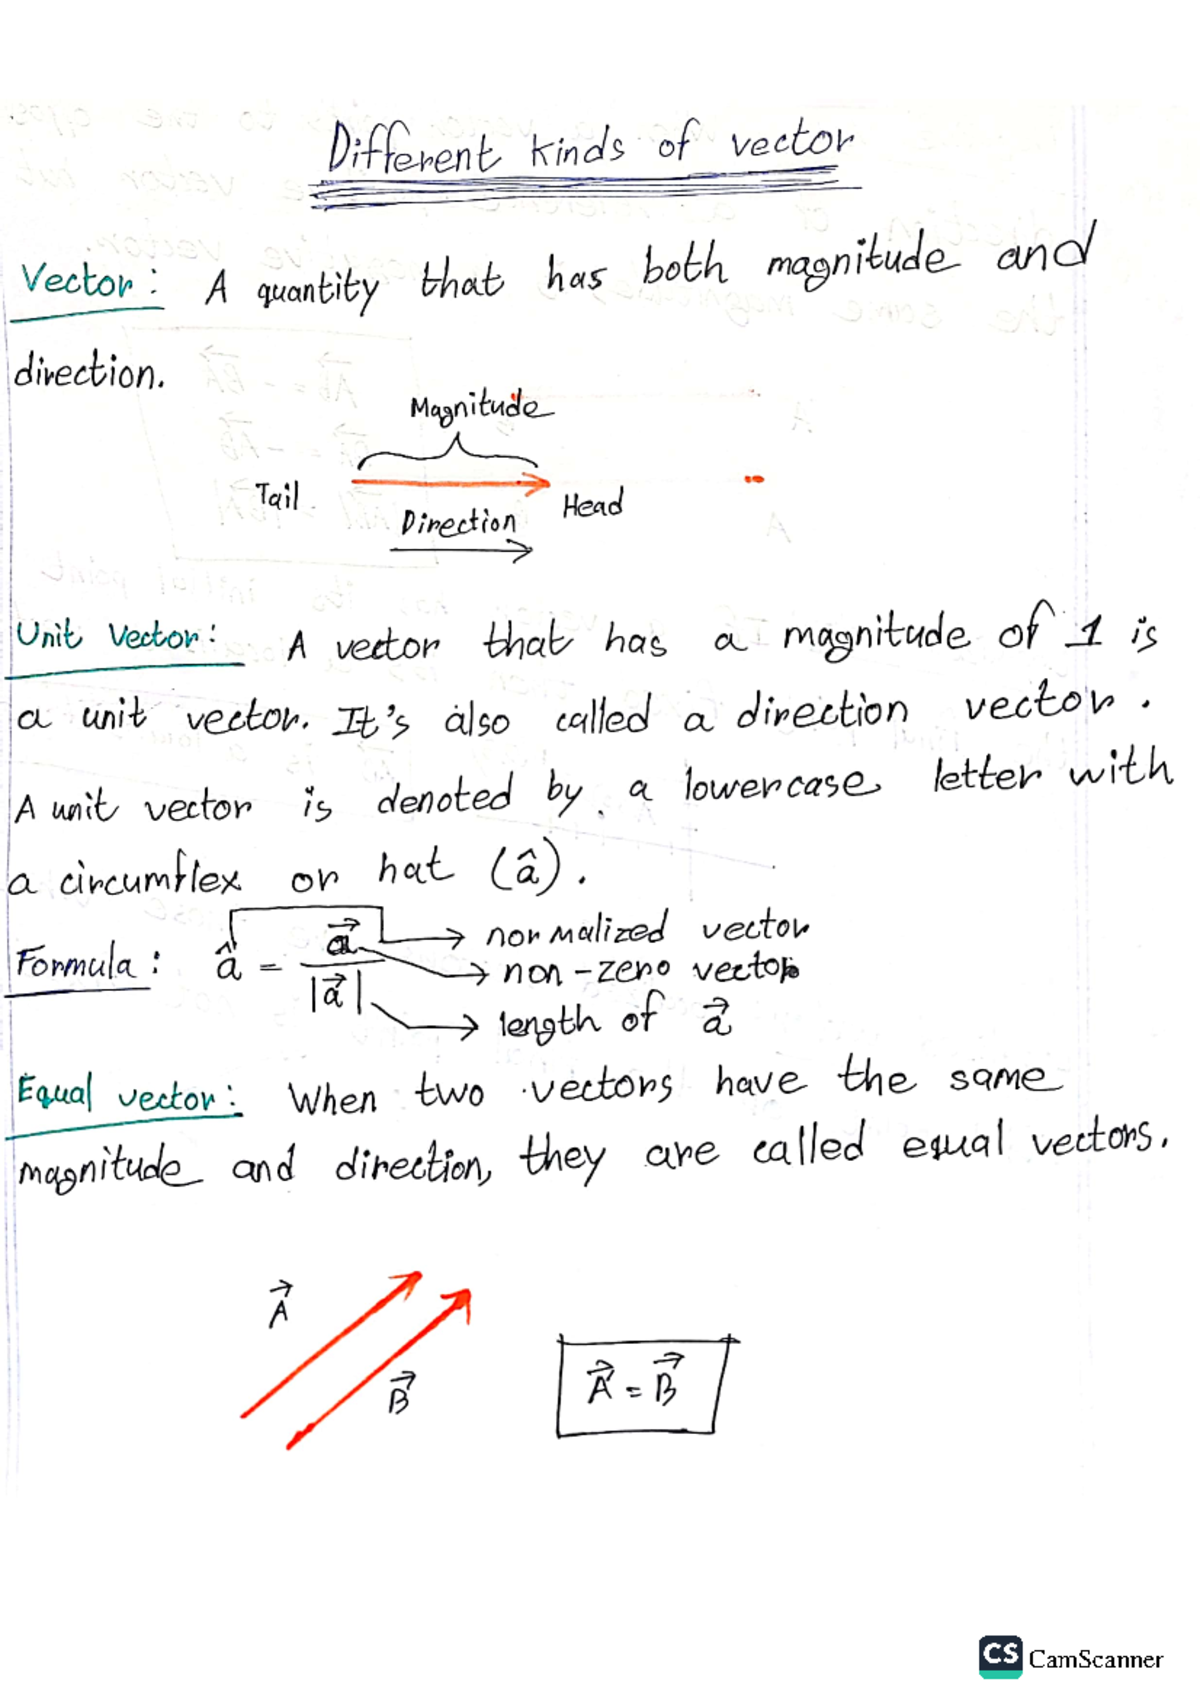 Different kinds of vector
Vector: A quantity that has both magnitude and
direction.
Magnitude
Tail
Head
Direction
Unit Vector: A vector that has a magnitude of 1 is
a unit vector. It's also called a direction vector.
A unit vector is denoted by a lowercase letter with
a circumflex or hat (â).
Formula: â = a⃗ / |a⃗|
normalized vector
non-zero vector
length of a⃗
Equal vector: When two vectors have the same
magnitude and direction, they are called equal vectors.
A⃗
B⃗
A⃗ = B⃗
CS CamScanner